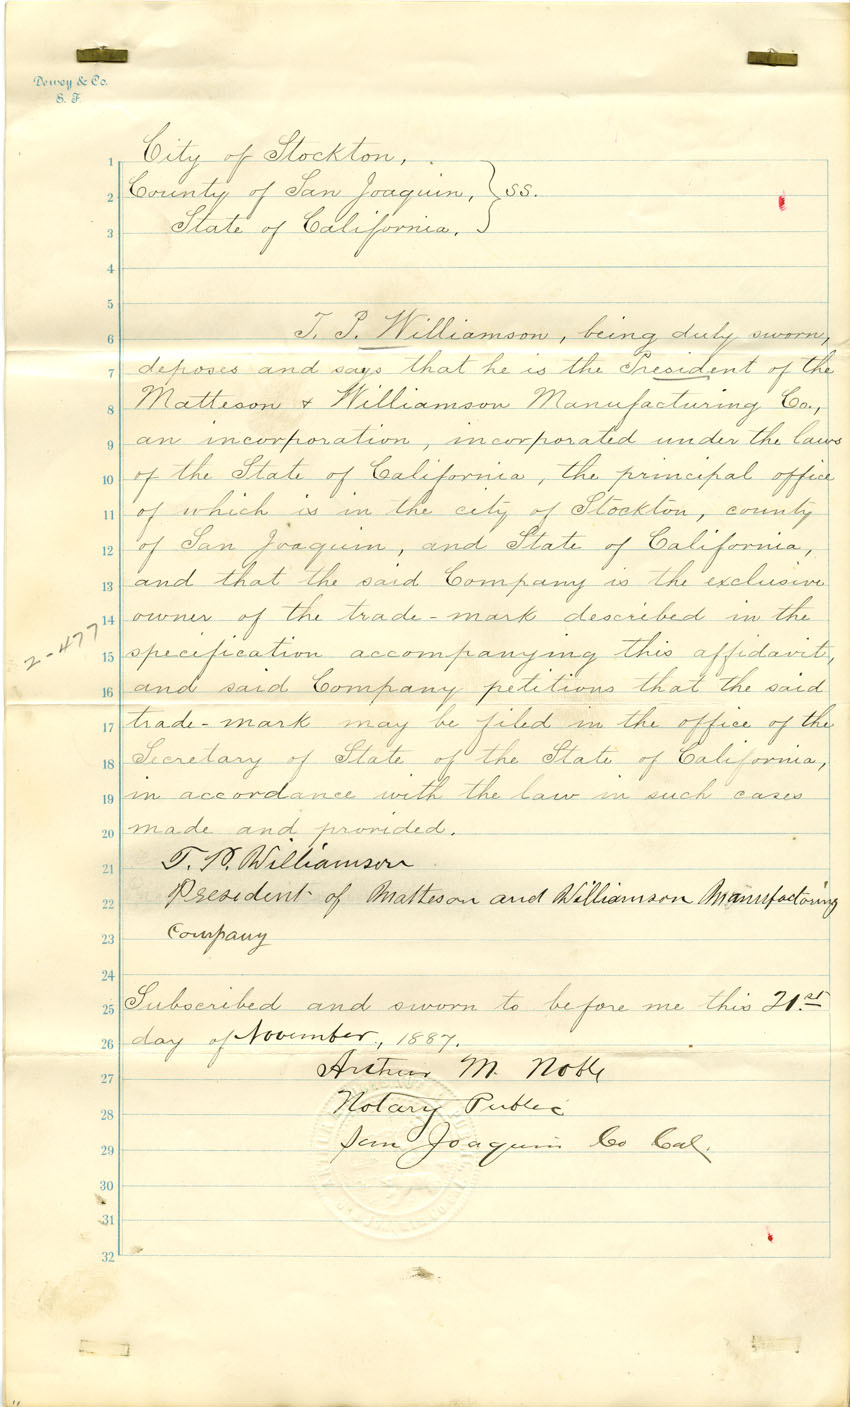 Dewey & Co.
S. F.
City of Stockton,
County of San Joaquin, } ss.
State of California.
T. P. Williamson, being duly sworn,
deposes and says that he is the President of the
Matteson & Williamson Manufacturing Co.,
an incorporation, incorporated under the laws
of the State of California, the principal office
of which is in the city of Stockton, county
of San Joaquin, and State of California,
and that the said Company is the exclusive
owner of the trade-mark described in the
2-477
specification accompanying this affidavit,
and said Company petitions that the said
trade-mark may be filed in the office of the
Secretary of State of the State of California,
in accordance with the law in such cases
made and provided.
T. P. Williamson
President of Matteson and Williamson Manufactoring
Company
Subscribed and sworn to before me this 21.st
day of November, 1887.
Arthur M. Noble
Notary Public
San Joaquin Co Cal.
1
2
3
4
5
6
7
8
9
10
11
12
13
14
15
16
17
18
19
20
21
22
23
24
25
26
27
28
29
30
31
32